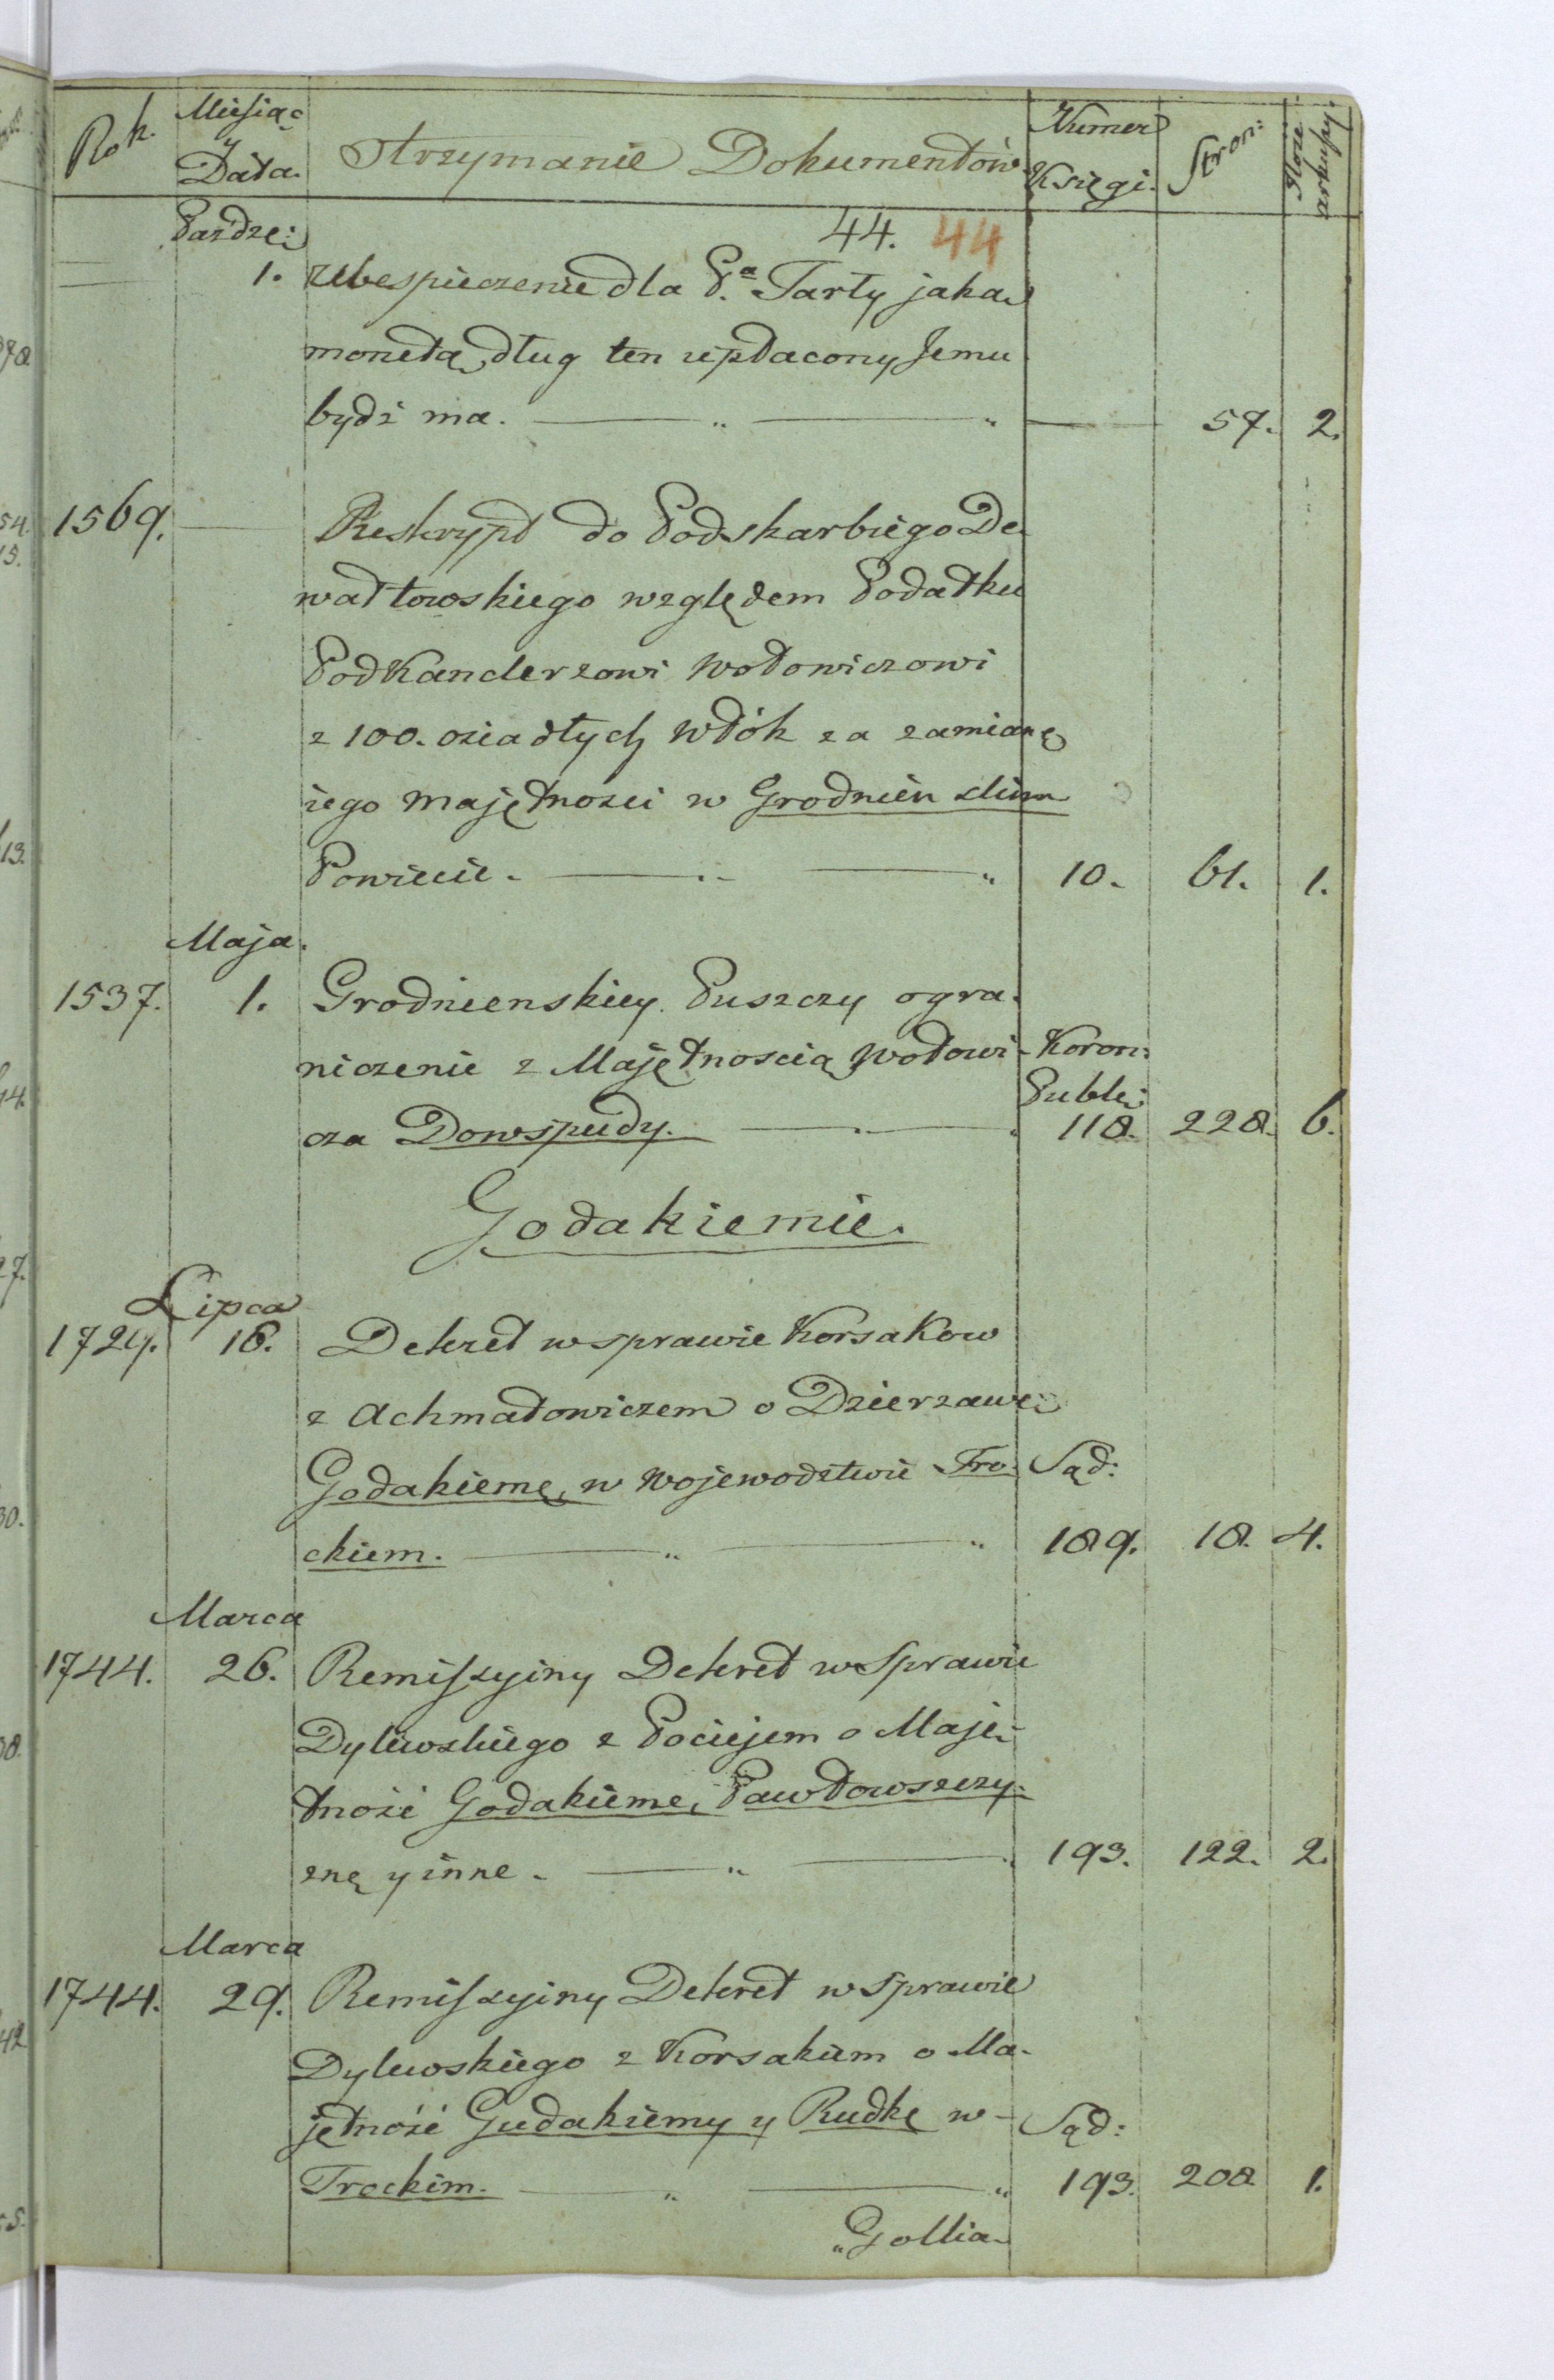 Rok. Miesiąc y Data. Otrzymanie Dokumentów. Numer Księgi. Stron: Iłość arkuszy.
44. 44
Paźdze:
1. Ubespieczenie dla P.ª Tarły jaka
monetą dług ten upłacony Jemu
bydź ma. — 57. 2.
1569. — Reskrypt do Podskarbiego De-
wałtowskiego względem Podatku
Podkanclerzowi Wołowiczowi
z 100. osiadłych Włók za zamianę
iego Majętnosci w Grodnieńskim
Powiecie. — 10. 61. 1.
Maja.
1537. 1. Grodnienskiey Puszczy ogra-
niczenie z Majętnoscią Wołowi- Koron:
Publi:
cza Dowspudy. — 118. 228. 6.
Godakiemie.
Lipca
1729. 16. Dekret w sprawie Korsakow
z Achmatowiczem o Dzierzawę
Godakiemę, w Wojewodztwie Tro- Sąd:
ckiem. — 189. 18. 4.
Marca
1744. 26. Remiszyiny Dekret w Sprawie
Dylewskiego z Pociejem o Maję-
tność Godakieme, Pawłowszczy-
znę y inne. — 193. 122. 2.
Marca
1744. 29. Remiszyiny Dekret w Sprawie
Dylewskiego z Korsakiem o Ma-
jętność Gudakiemy y Rudkę w - Sąd:
Trockim. — 193. 208 1.
"Gollia-